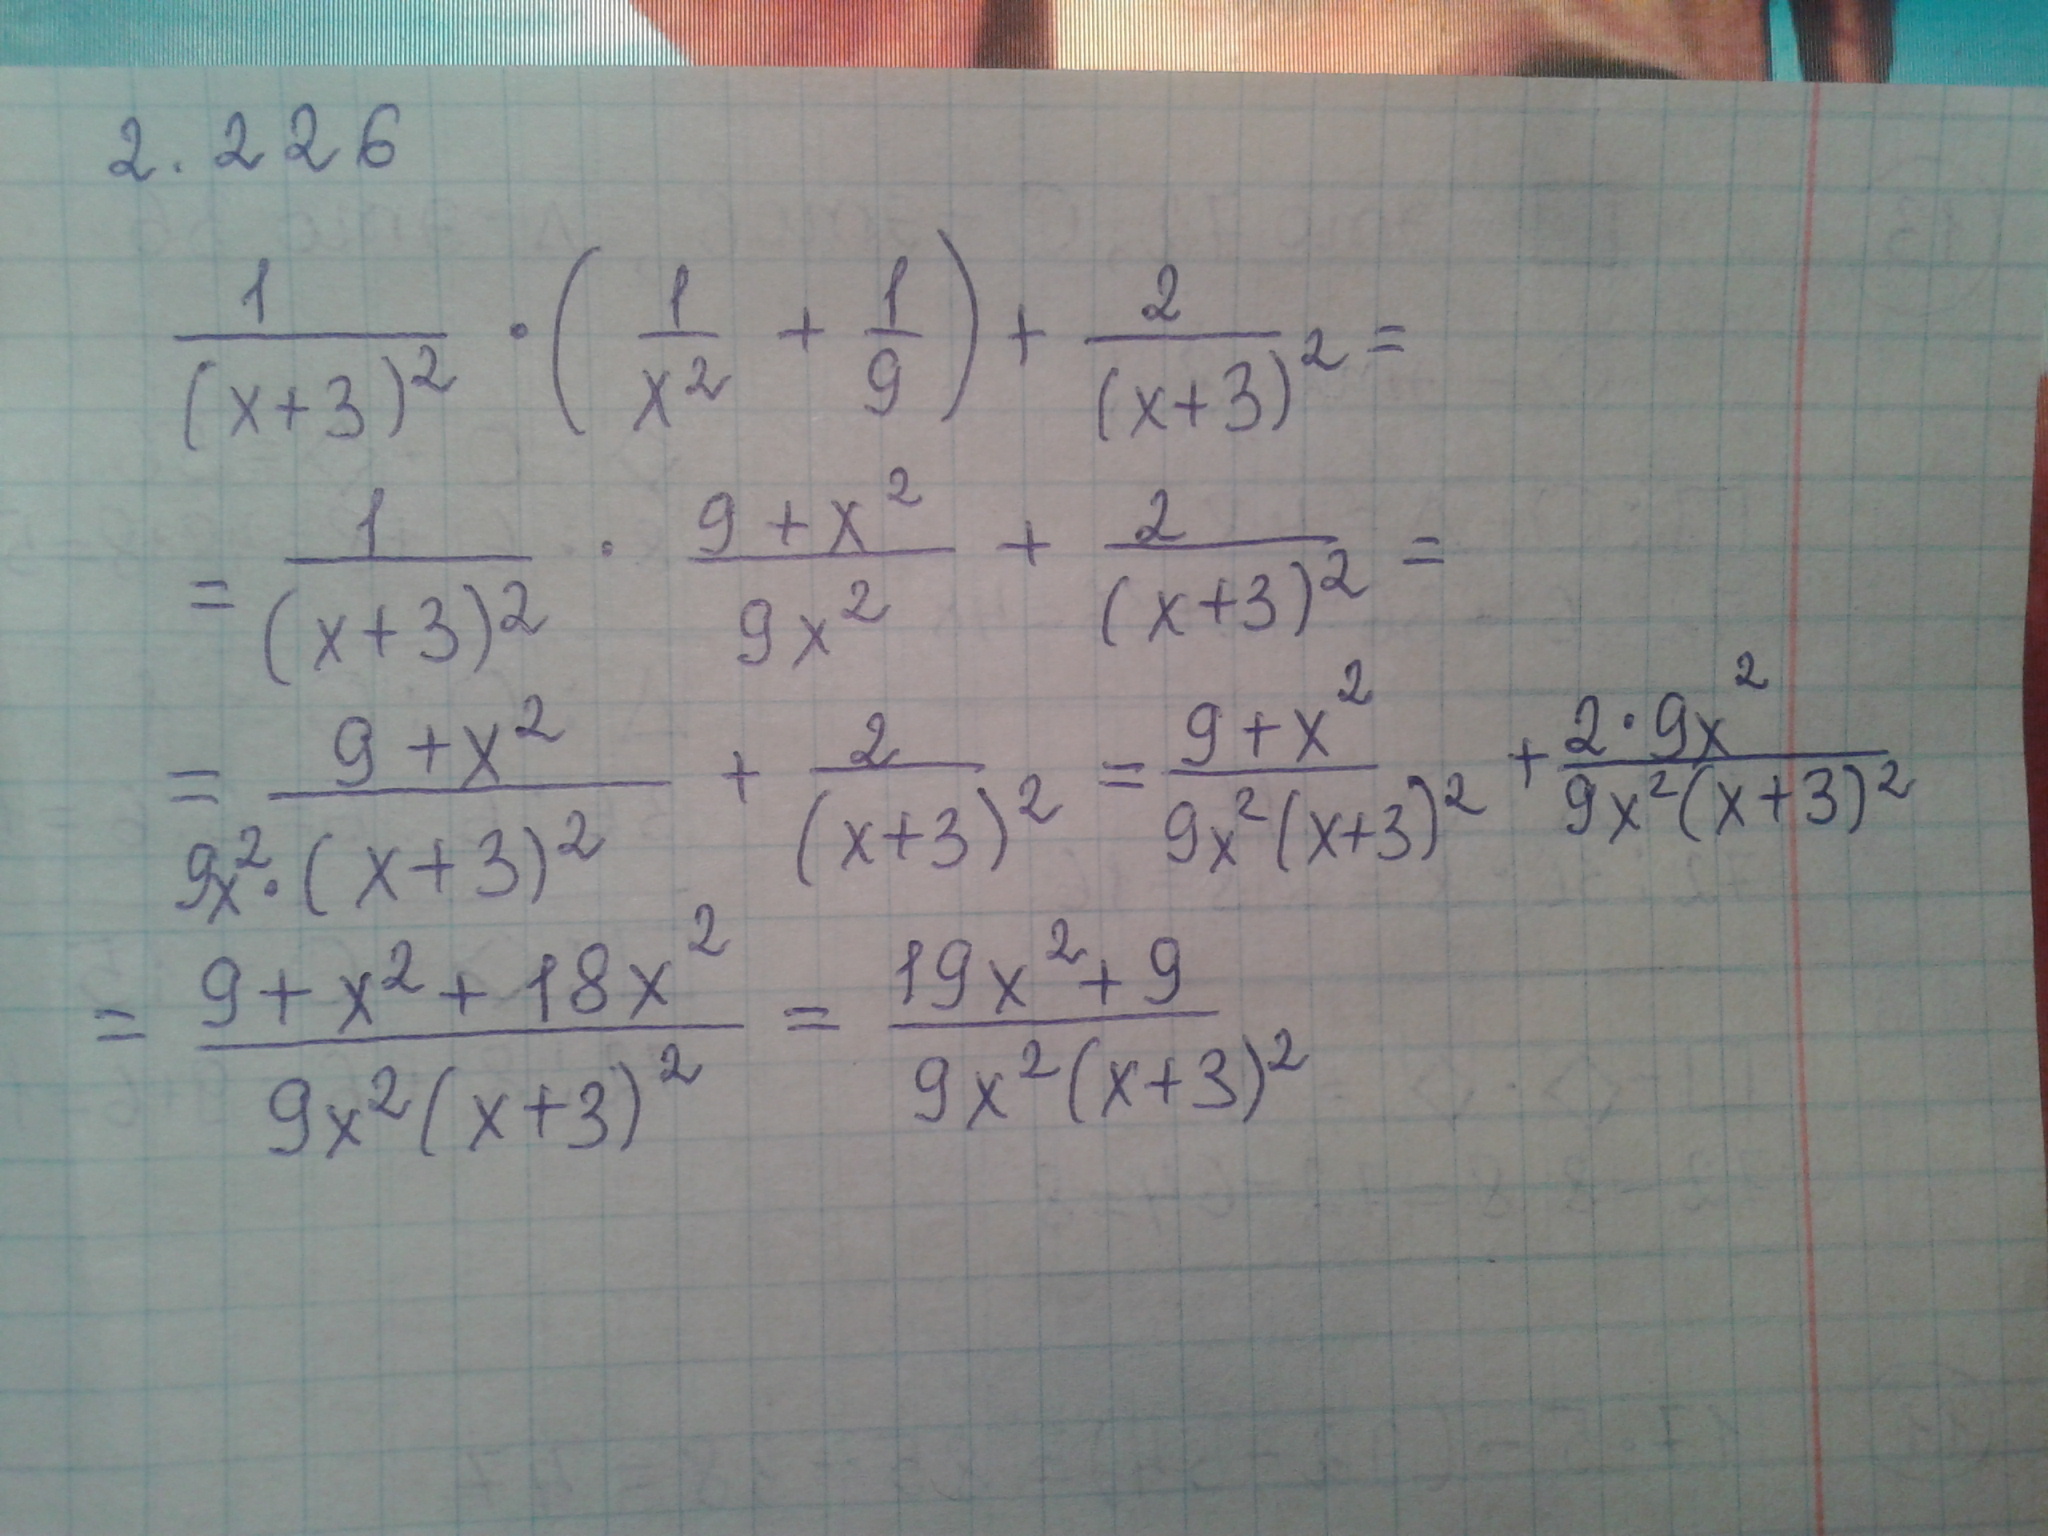 2.226
1/(x+3)² · (1/x² + 1/9) + 2/(x+3)² =
= 1/(x+3)² · (9+x²)/(9x²) + 2/(x+3)² =
= (9+x²)/(9x²·(x+3)²) + 2/(x+3)² = (9+x²)/(9x²(x+3)²) + (2·9x²)/(9x²(x+3)²)
= (9+x²+18x²)/(9x²(x+3)²) = (19x²+9)/(9x²(x+3)²)